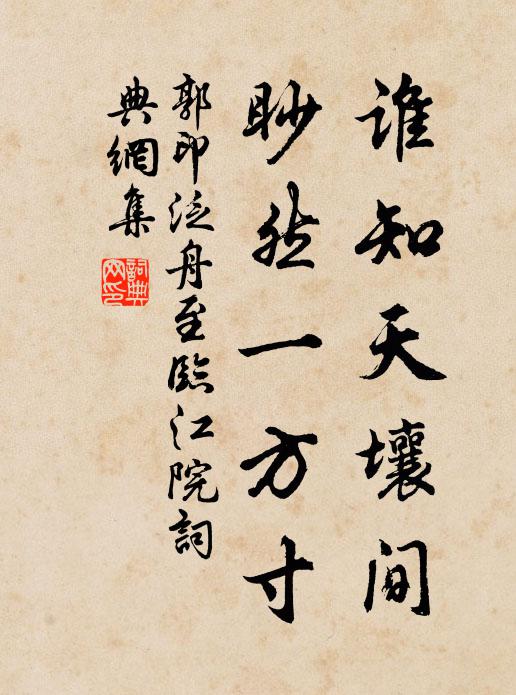 谁知天壤间
眇然一方寸
郭印泛舟至臨江院詞
典網集
詞典网印